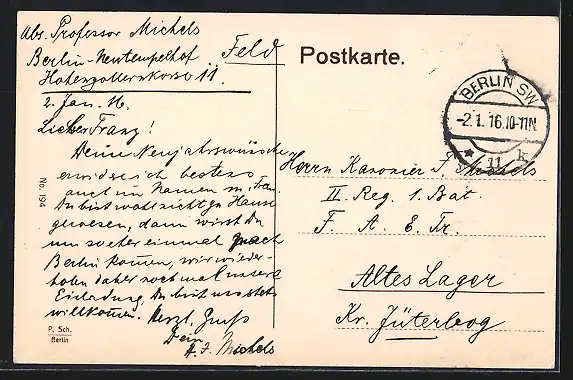 Abs. Professor Michels
Berlin-Neutempelhof
Hohenzollernkorso 11.
2. Jan. 16.
Lieber Franz!
Deine Neujahrswünsche
erwidre ich bestens
auch im Namen m. Frau.
Du bist wohl nicht zu Hause
gewesen, dann wirst Du
um so eher einmal nach
Berlin kommen, wir wieder-
holen daher noch mal unsere
Einladung, Du bist uns stets
willkommen. Herzl. Gruß
Dein
A. J. Michels
No. 194
P. Sch.
Berlin
Feld
Postkarte.
BERLIN SW
-2.1.16.10-11N.
* 11 k
Herrn Kanonier F. Michels
II. Reg. 1. Bat.
F. A. E. Tr.
Altes Lager
Kr. Jüterbog